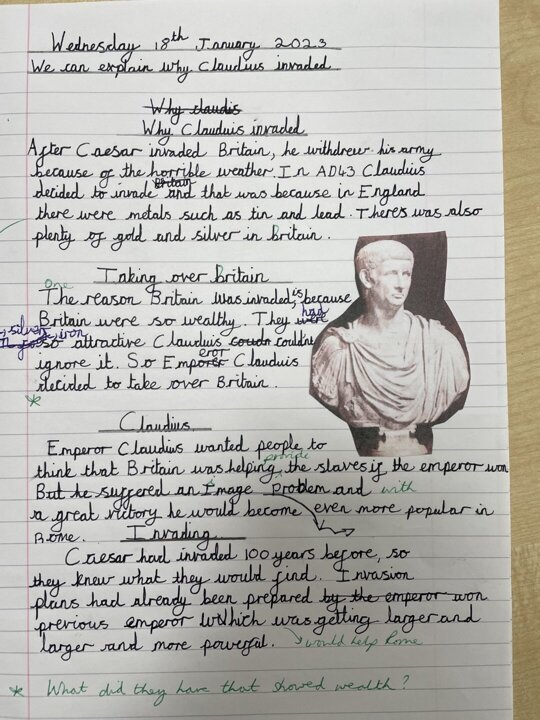 Wednesday 18th January 2023
We can explain why Claudius invaded
Why claudis
Why Clauduis invaded
After Caesar invaded Britain, he withdrew his army
because of the horrible weather. In AD43 Claudius
decided to invade Britain and that was because in England
there were metals such as tin and lead. There's was also
plenty of gold and silver in Britain.
Taking over Britain
One
The reason Britain was invaded, is because
Britain were so wealthy. They were had
, silver, iron
so attractive Clauduis couldn couldnt
ignore it. So Emporer eror Clauduis
decided to take over Britain.
*
Claudius
Emperor Claudius wanted people to
provide
think that Britain was helping the slaves if the emperor won
But he suffered an Image problem and with
a great victory he would become even more popular in
Rome. Invading
Caesar had invaded 100 years before, so
they knew what they would find. Invasion
plans had already been prepared by the emperor won
previous emperor Which was getting larger and
larger and more powerful. would help Rome
* What did they have that showed wealth?